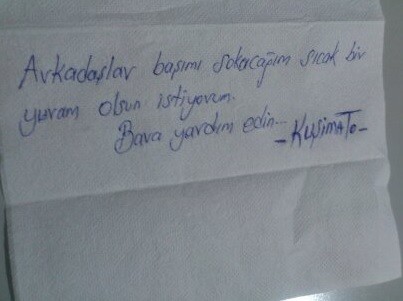 Arkadaşlar başımı sokacağım sıcak bir
yuvam olsun istiyorum.
Bana yardım edin...
-KuşimaTo-